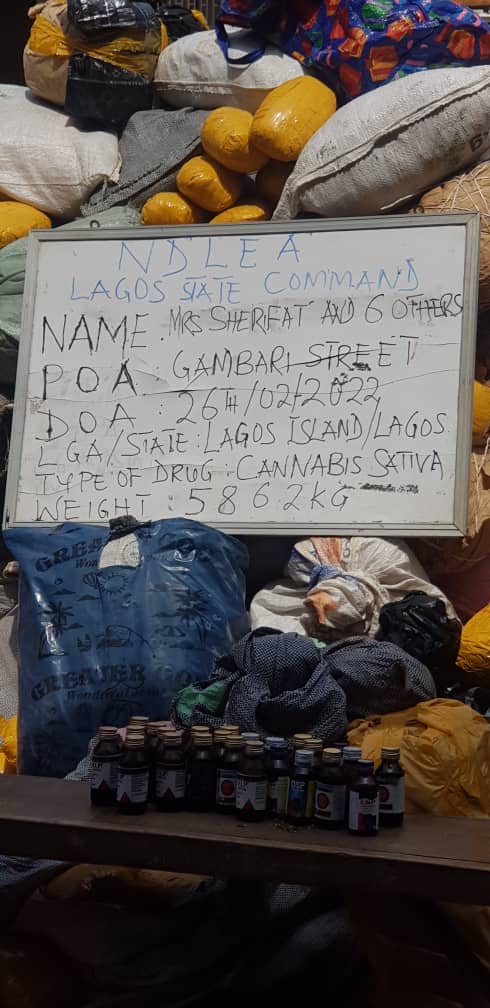 NDLEA
LAGOS STATE COMMAND
NAME. MRS SHERIFAT AND 6 OTHERS
POA: GAMBARI STREET
DOA: 26TH/02/2022
LGA/STATE: LAGOS ISLAND/LAGOS
TYPE OF DRUG: CANNABIS SATIVA
WEIGHT: 5862KG
GREATER GO